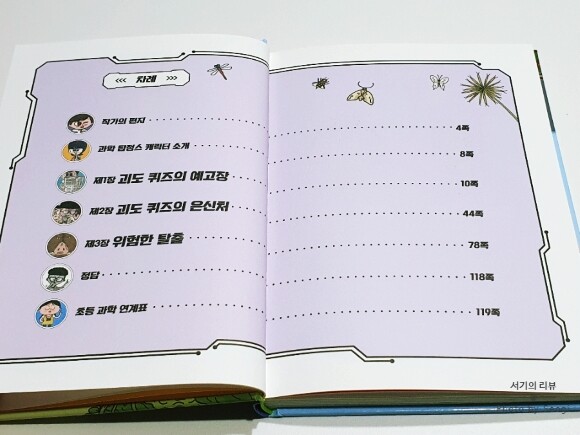 <<< 차례 >>>
작가의 편지 4쪽
과학 탐정스 캐릭터 소개 8쪽
제1장 괴도 퀴즈의 예고장 10쪽
제2장 괴도 퀴즈의 은신처 44쪽
제3장 위험한 탈출 78쪽
정답 118쪽
초등 과학 연계표 119쪽
서기의 리뷰